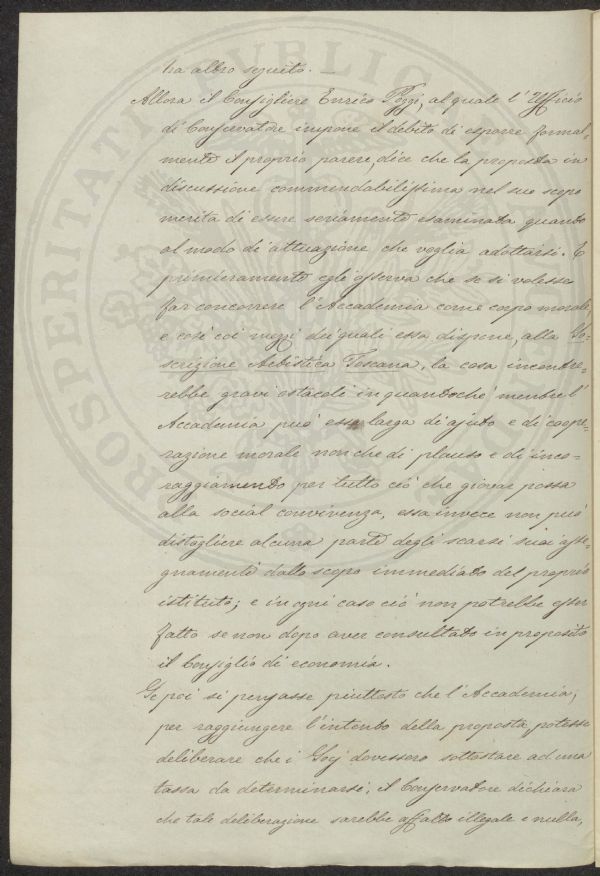 ha altro seguito. —
Allora il Consigliere Enrico Pozzi, al quale l'Ufficio
di Conservatore impone il debito di esporre formal-
mente il proprio parere, dice che la proposta in
discussione commendabilissima nel suo scopo
merita di essere seriamente esaminata quando
al modo di attuazione che voglia adottarsi. E
primieramente egli osserva che se si volesse
far concorrere l'Accademia come corpo morale,
e così coi mezzi dei quali essa dispone, alla So-
scrizione Artistica Toscana, la cosa incontre-
rebbe gravi ostacoli in quantochè mentre l'
Accademia può esser larga di ajuto e di coope-
razione morale non che di plauso e di inco-
raggiamento per tutto ciò che giovar possa
alla social convivenza, essa invece non può
distogliere alcuna parte degli scarsi suoi asse-
gnamenti dallo scopo immediato del proprio
istituto; e in ogni caso ciò non potrebbe esser
fatto se non dopo aver consultato in proposito
il Consiglio di economia.
Se poi si pensasse piuttosto che l'Accademia,
per raggiungere l'intento della proposta, potesse
deliberare che i Socj dovessero sottostare ad una
tassa da determinarsi, il Conservatore dichiara
che tale deliberazione sarebbe affatto illegale e nulla,
PROSPERITATI PUBLICAE AUGENDAE